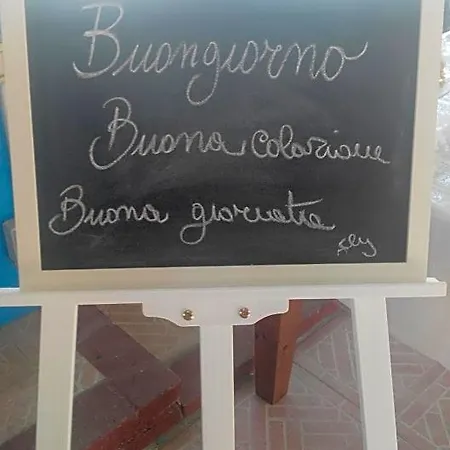 Buongiorno
Buona colazione
Buona giornata